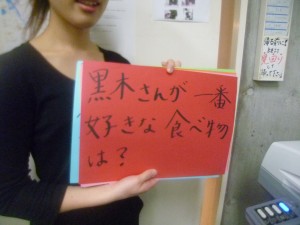 黒木さんが 一番
好きな 食べ物
は?